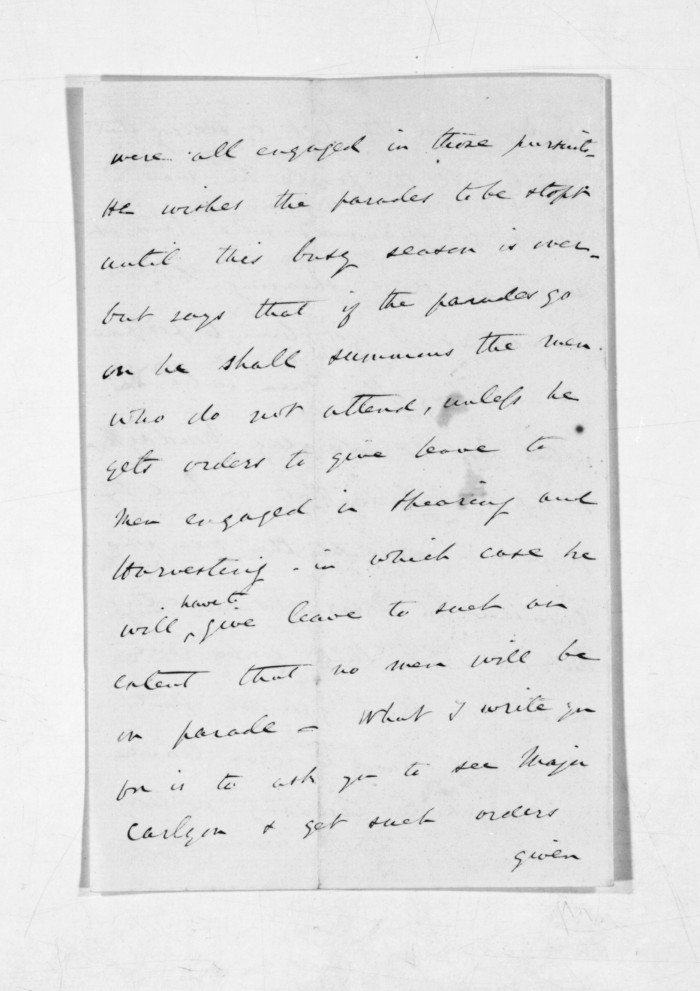 were all engaged in those pursuits-
He wishes the parades to be stopt
until this busy season is over-
but says that if the parades go
on he shall summons the men
who do not attend, unless he
gets orders to give leave to
Men engaged in Shearing and
Harvesting - in which case he
have to
will ^ give leave to such an
extent that no men will be
on parade - What I write you
for is to ask you to see Major
Carlyon & get such orders
given